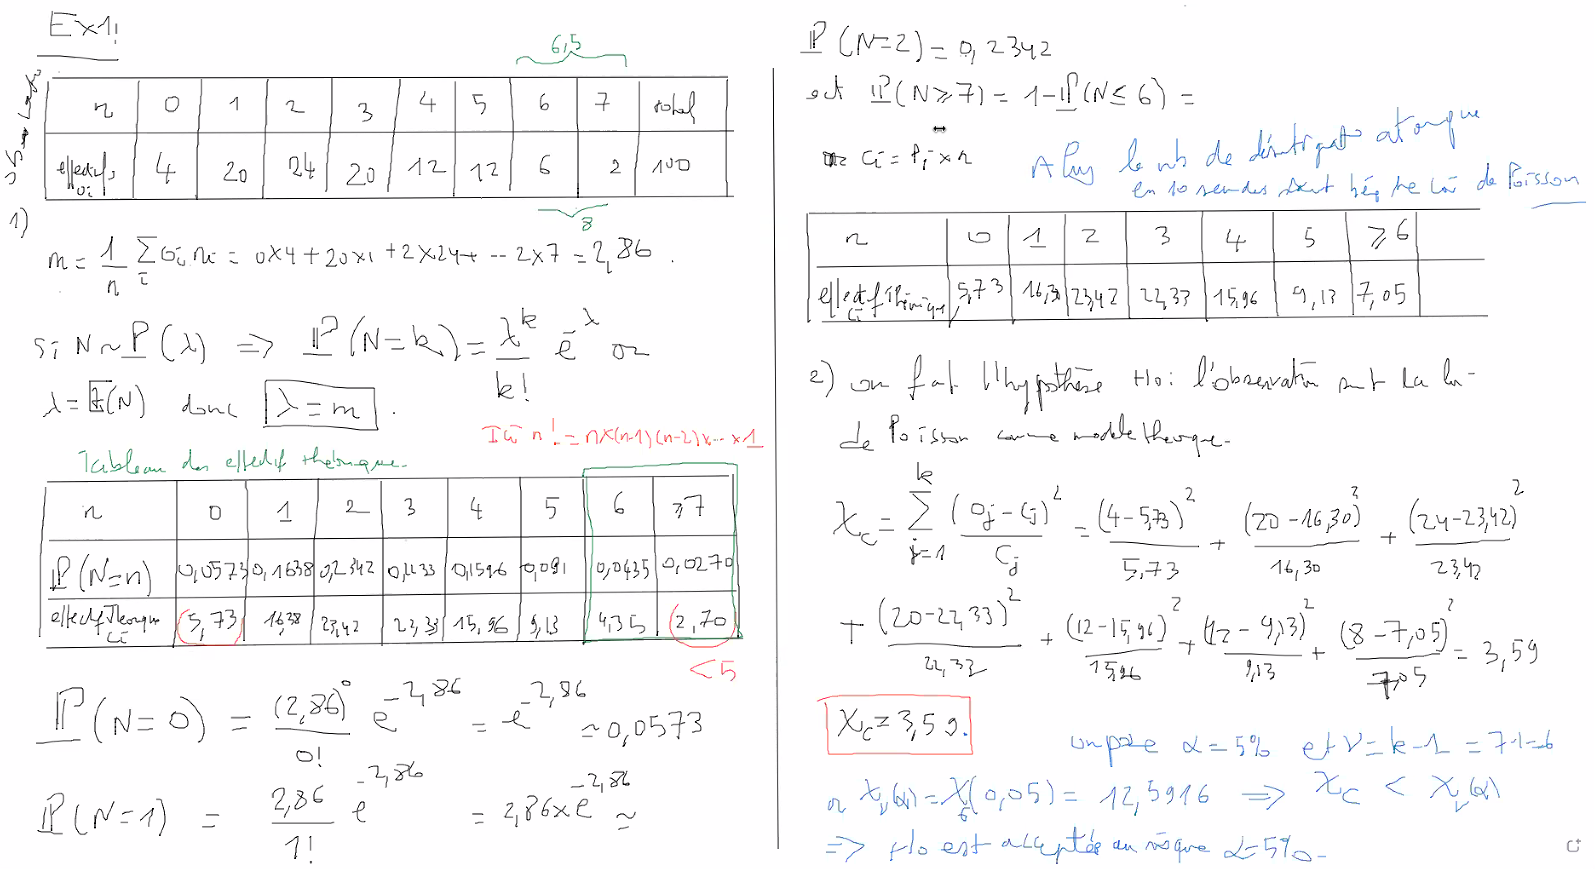 Ex1:
6,5
n 0 1 2 3 4 5 6 7 total
effectifs oi 4 20 24 20 12 12 6 2 100
8
1)
m = 1/n Σ_i oi ni = 0x4 + 20x1 + 2x24 + --- 2x7 = 2,86.
Si N ~ P(λ) => P(N=k) = λ^k/k! e^-λ or
λ = E(N) donc λ = m.
Ici n! = nx(n-1)(n-2)x...x1
Tableau des effectif théorique.
n 0 1 2 3 4 5 6 ≥7
P(N=n) 0,0573 0,1638 0,2342 0,2233 0,1596 0,091 0,0435 0,0270
effectif théorique ci 5,73 16,38 23,42 22,33 15,96 9,13 4,35 2,70
<5
P(N=0) = (2,86)^0/0! e^-2,86 = e^-2,86 ≃ 0,0573
P(N=1) = 2,86/1! e^-2,86 = 2,86 x e^-2,86 ≃
P(N=2) = 0,2342
et P(N≥7) = 1-P(N≤6) =
ci = Pi x n
le nb de atomique
en 10 secondes loi de Poisson
n 0 1 2 3 4 5 ≥6
effectif théorique ci 5,73 16,30 23,42 22,33 15,96 9,13 7,05
2) on fait l'hypothèse Ho: l'observation suit la loi
de Poisson comme modèle théorique.
χc = Σ_{j=1}^{k} (oj - cj)^2/cj = (4-5,73)^2/5,73 + (20-16,30)^2/16,30 + (24-23,42)^2/23,42
+ (20-22,33)^2/22,33 + (12-15,96)^2/15,96 + (12-9,13)^2/9,13 + (8-7,05)^2/7,05 = 3,59
χc = 3,59.
on pose α = 5% et ν = k-1 = 7-1 = 6
or χν(α) = χ6(0,05) = 12,5916 => χc < χν(α)
=> Ho est acceptée au risque α=5%.